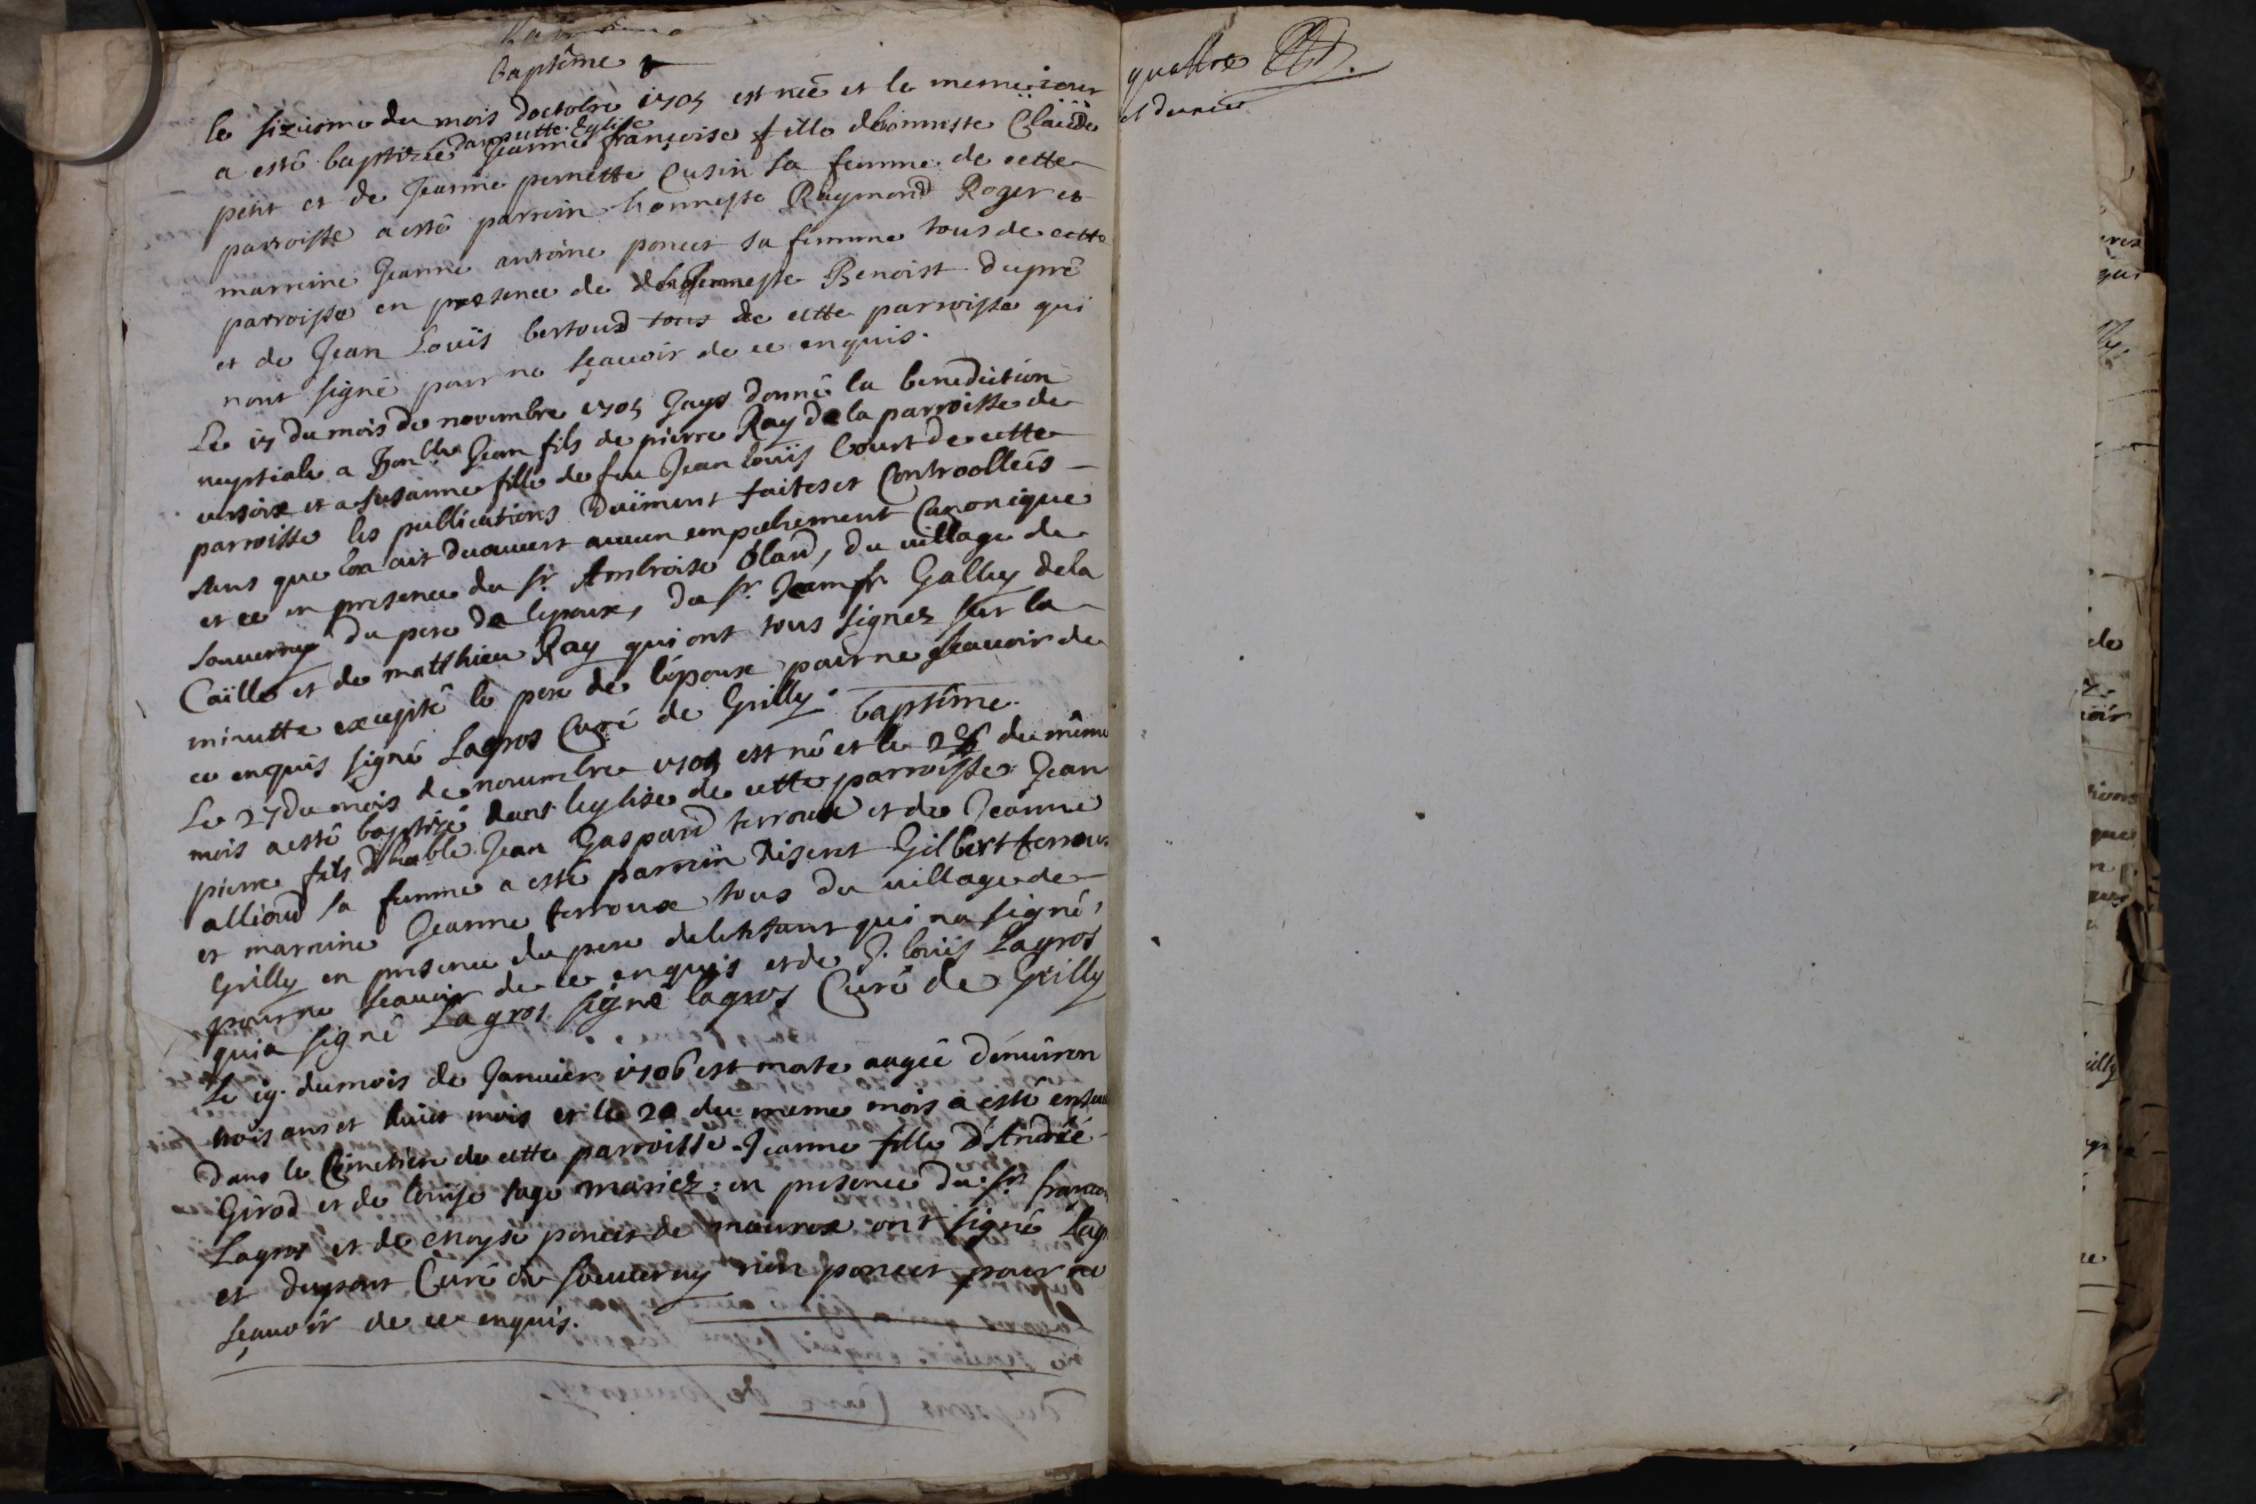 Baptême
le sixieme du mois doctobre 1705 est neé et le meme iour
a esté baptizée dans cette Eglise Jeanne françoise fille dhonneste Claude
petit et de Jeanne pernette Cusin sa femme de cette
parroisse a esté parrein honneste Raymond Roger et
marreine Jeanne antoine poncet sa femme tous de cette
parroisse en presence de honneste Benoist dupré
et de Jean Louïs bertoud tous de cette parroisse qui
nont signé pour ne sçauoir de ce enquis.
Le 17 du mois de novembre 1705 Jays donné la benediction
nuptiale a Honble Jean fils de pierre Ray de la parroisse de
uersoix et a susanne fille de feu Jean louïs Court de cette
parroisse les publications duïment faites et Controollées
sans que lon ait decouuert aucun empechement Canonique
et ce en presence du sr. Ambroise Oland, du uillage de
souuerny du pere de lepoux, du sr. Jean fr. Galley de la
Caille et de matthieu Ray qui ont tous signez sur la
minutte excepté le pere de lépoux pour ne sçauoir de
ce enquis signé Lagros Curé de Grilly. baptême.
Le 27 du mois de nouembre 1705 est né et le 28 du même
mois a esté baptisé dans leglise de cette parroisse Jean
pierre fils dhoble Jean Gaspard terroux et de Jeanne
alliod sa femme a esté parrein disent Gilbert terroux
et marreine Jeanne terroux tous du uillage de
Grilly en presence du pere de lenfant qui na signé,
pour ne sçauoir de ce enquis et de J. louïs Lagros
qui a signé Lagros signé lagros Curé de Grilly
Le 19. du mois de Januier 1706 est morte augée dénuiron
trois ans et huict mois et le 20 du meme mois a esté enseu
dans le Cimetiere de cette parroisse Jeanne fille d'André
Girod et de louïse sage mariez: en presence du sr. françois
Lagros et de moyse poncet de maurex ont signé Lag
et dupont Curé de souuerny non poncet pour ne
sçauoir de ce enquis.
quattre
et dernier